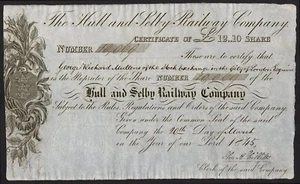 The Hull and Selby Railway Company
CERTIFICATE OF £12.10 SHARE
NUMBER
These are to certify that
George Richard of the Stock Exchange in the City of London Esquire
is the Proprietor of the Share NUMBER of the
Hull and Selby Railway Company
Subject to the Rules, Regulations and Orders of the said Company
Given under the Common Seal of the said
Company the Day of
in the Year of our Lord 1845
Clerk of the said Company